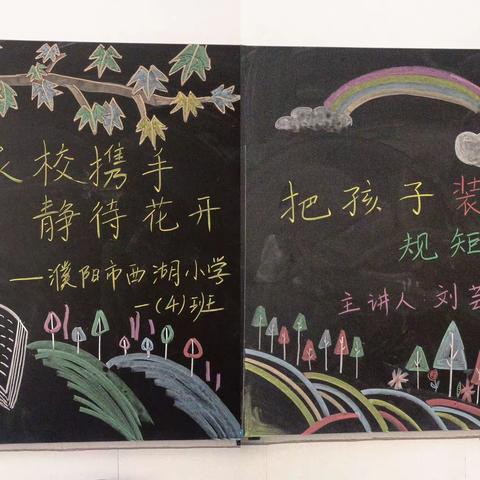 家校携手
静待花开
——濮阳市西湖小学
一(4)班
把孩子装
规矩
主讲人:刘芸